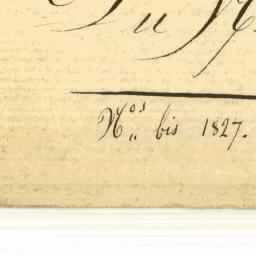 Du
N.os bis 1827.